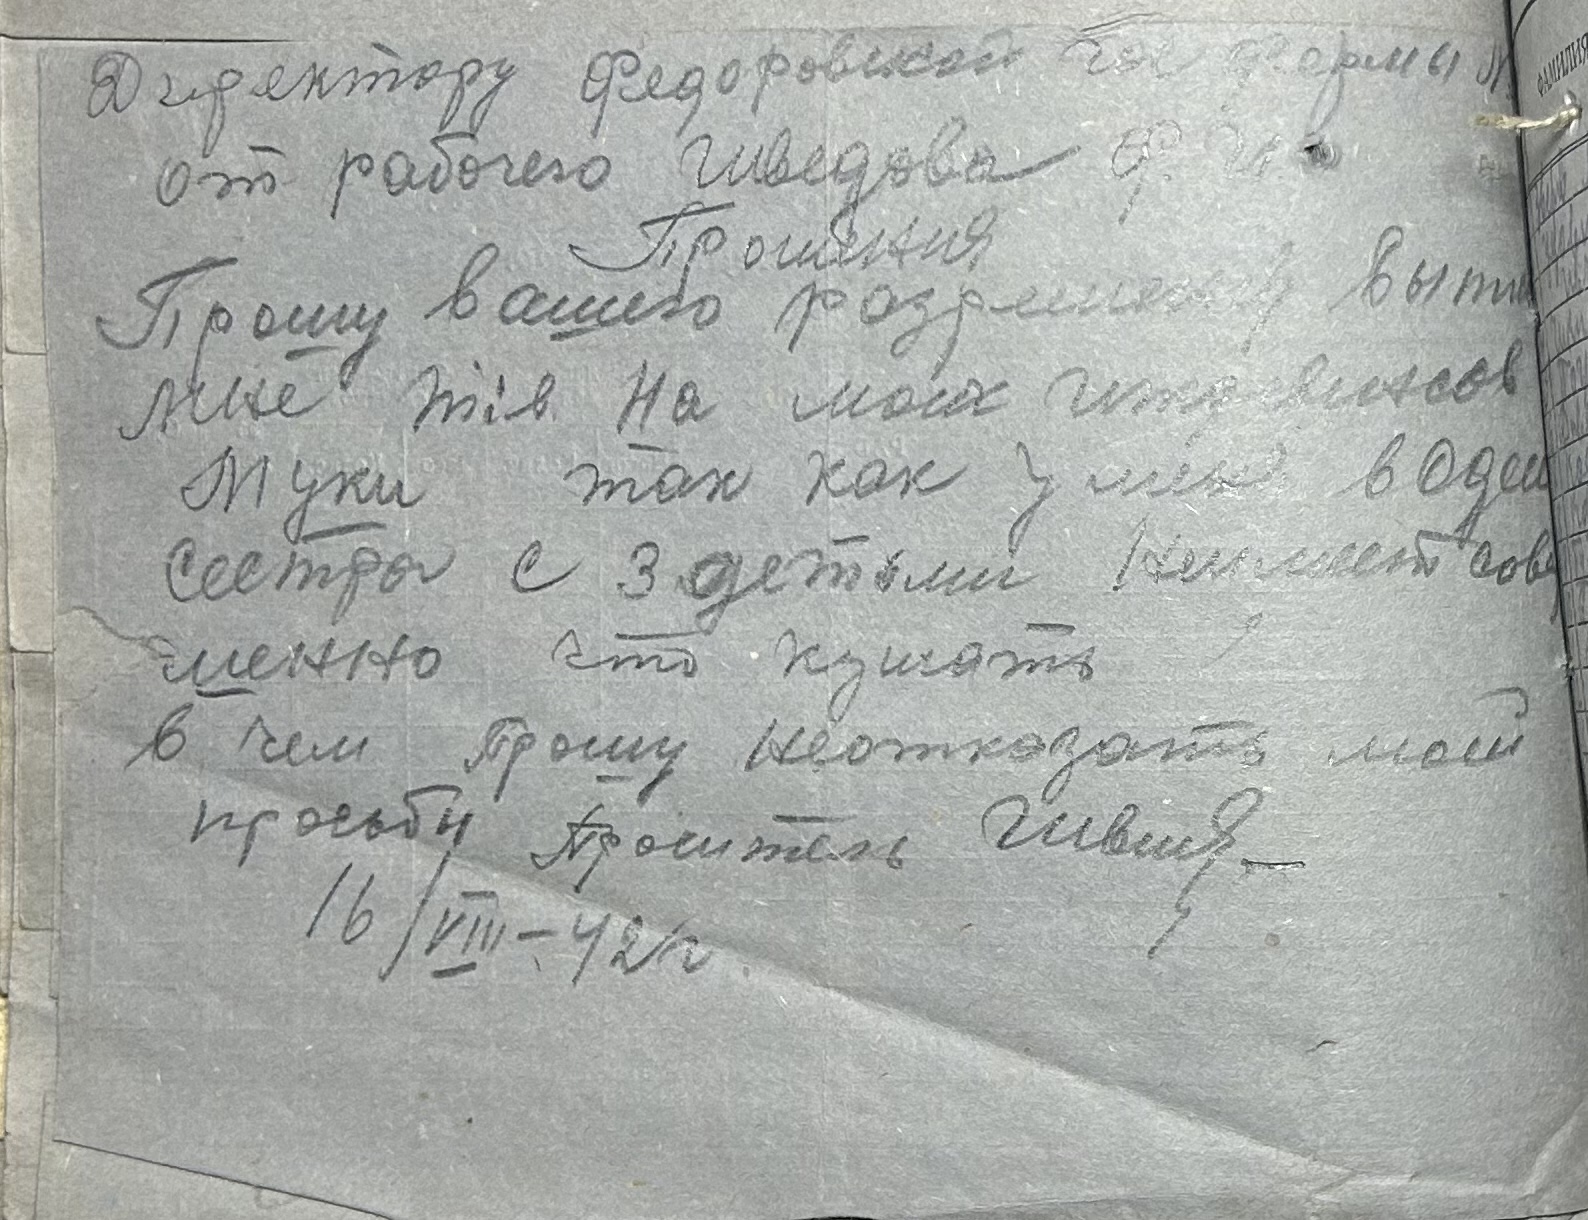 Директору Федоровской гос фермы №
От рабочего Шведова Ф. И.
Прошения
Прошу вашего
мне на моих иждевенсов
Муки так как у меня
Сестра с 3 детьми Неимеет сове
шенно что кушать
в чем прошу неотказать моей
просьбы проситель
16/VIII-42 г.
ФАМИЛИЯ